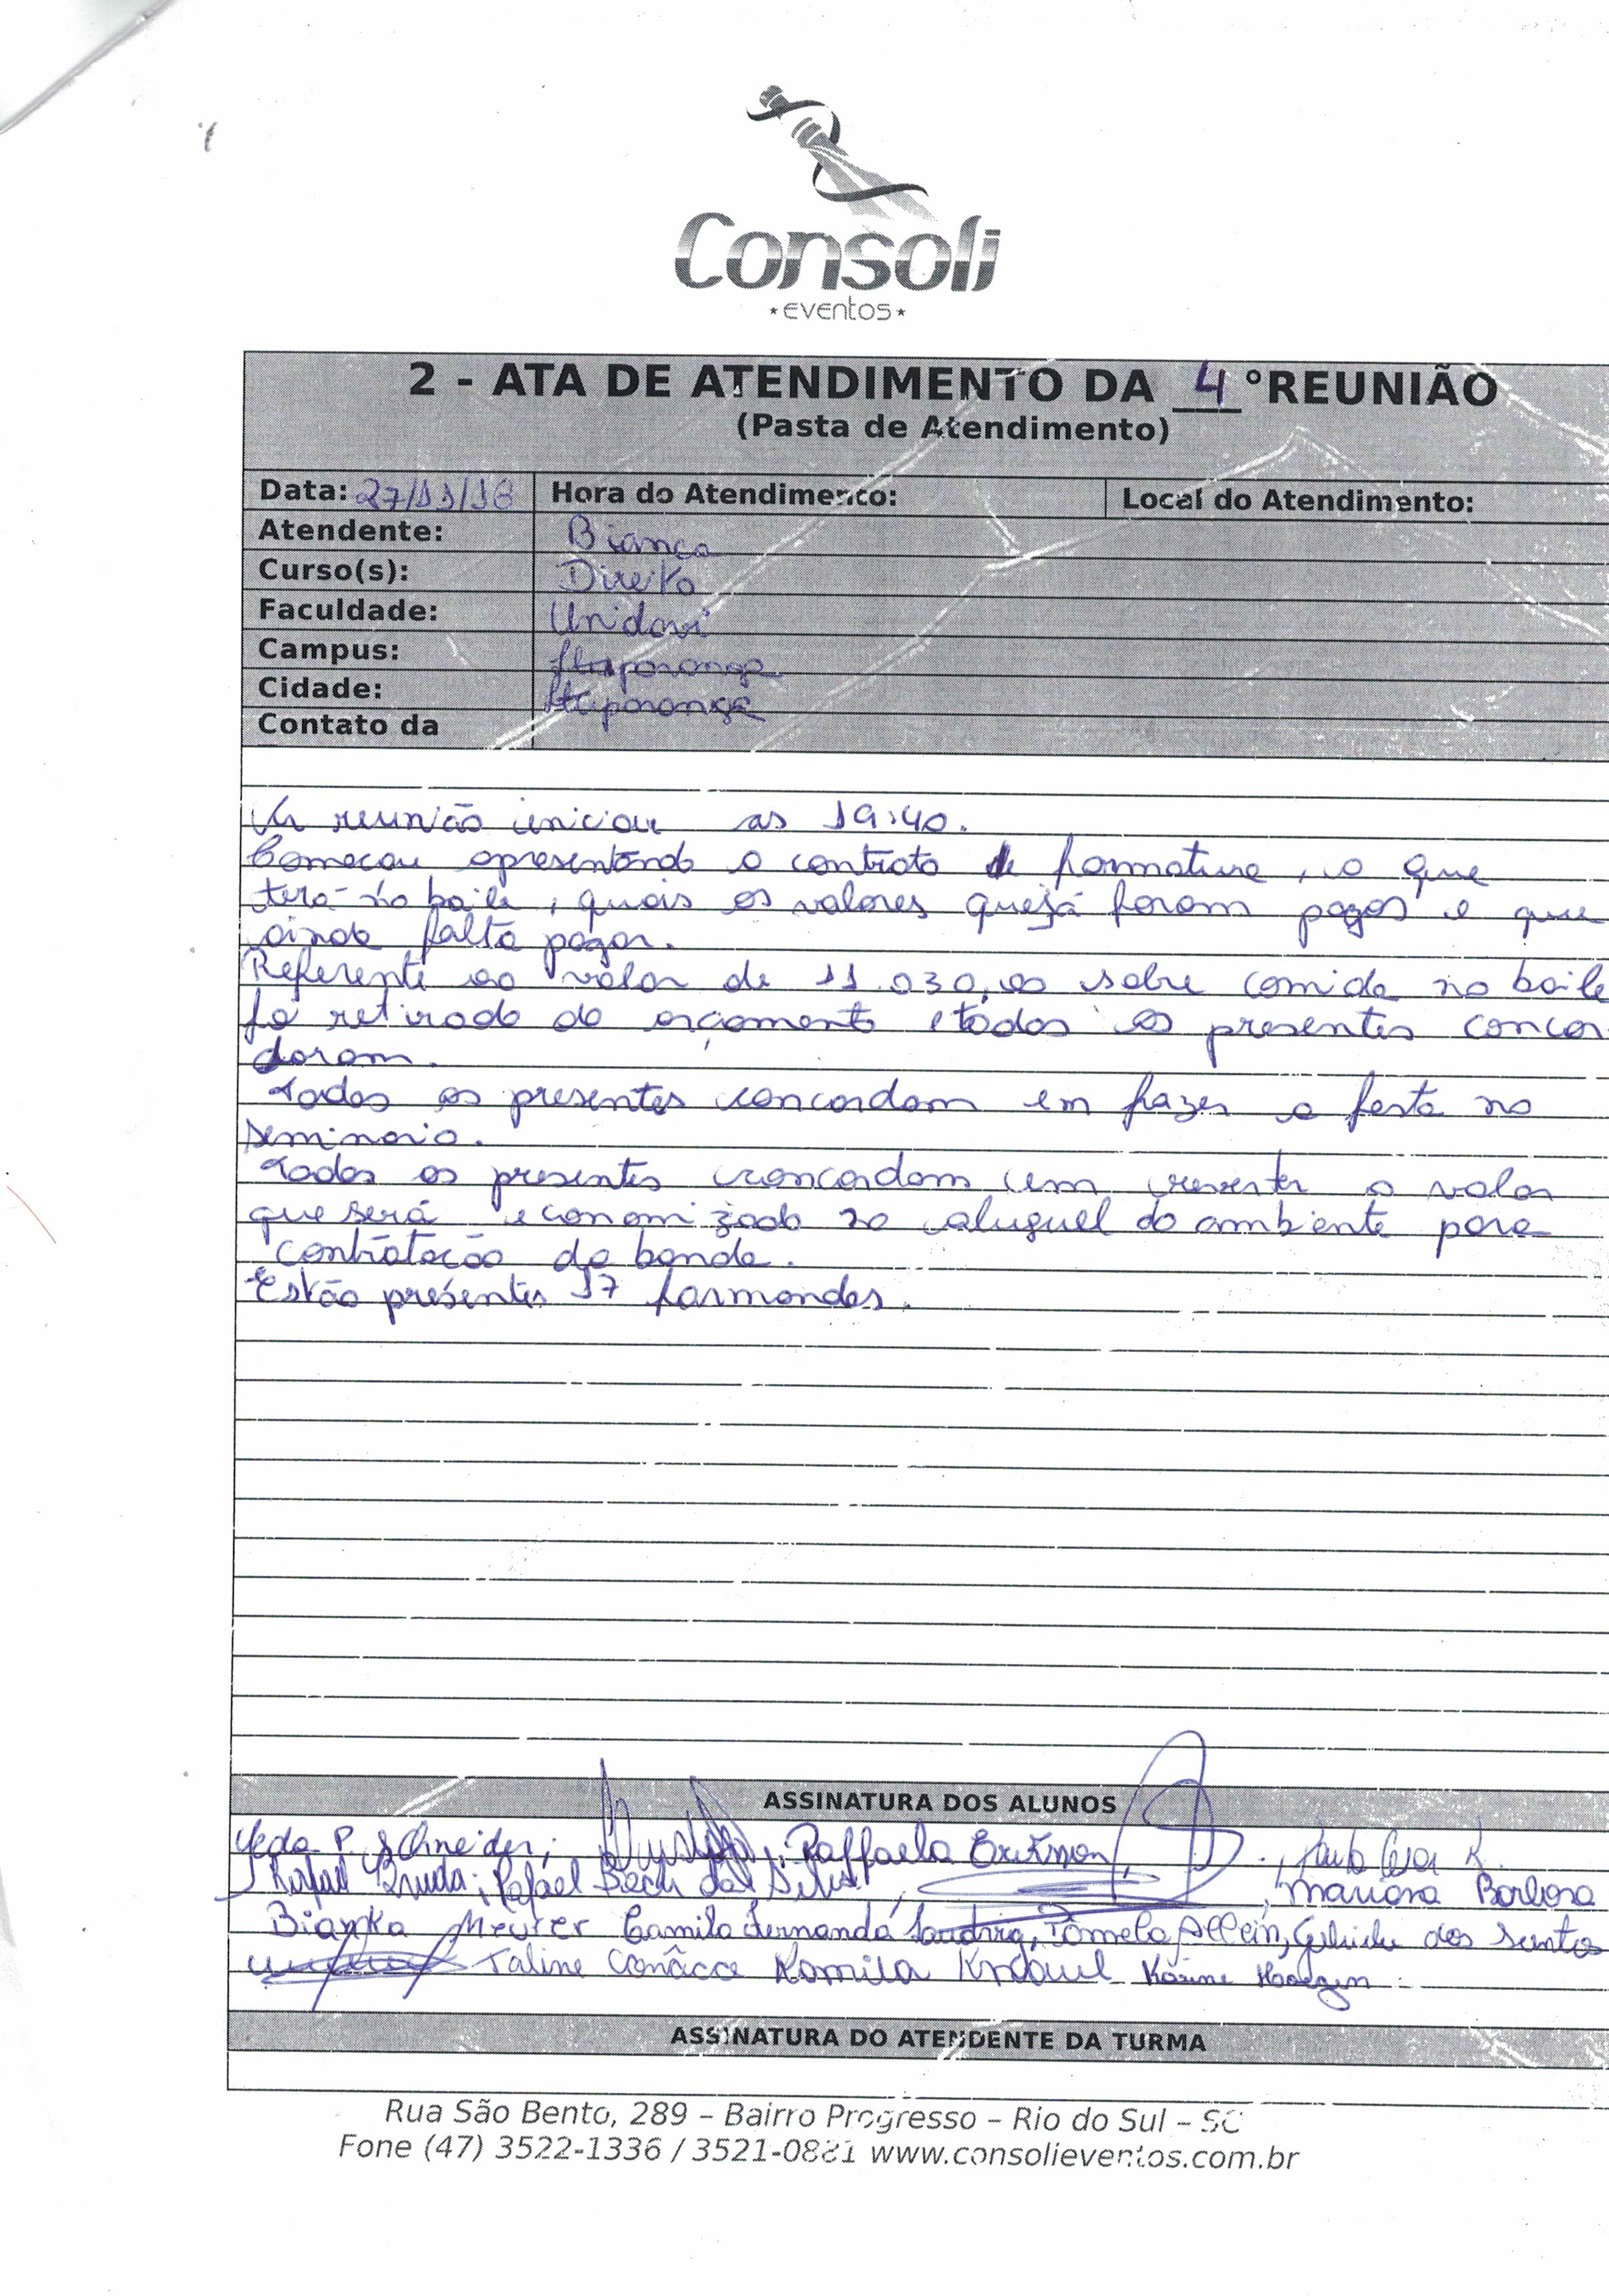 Consoli
*eventos*
2 - ATA DE ATENDIMENTO DA 4 °REUNIÃO
(Pasta de Atendimento)
Data: 27/11/18 Hora do Atendimento: Local do Atendimento:
Atendente: Bianca
Curso(s): Direito
Faculdade: Unidavi
Campus: Ituporanga
Cidade: Ituporanga
Contato da
A reunião iniciou as 19:40.
Começou apresentando o contrato de formatura, o que
terá no baile, quais os valores que já foram pagos e que
ainda falta pagar.
Referente ao valor de 11.030,00 sobre comida no baile
foi retirado do orçamento e todos os presentes concor
daram.
Todos os presentes concordam em fazer a festa no
seminario.
Todos os presentes concordam em reverter o valor
que será economizado no aluguel do ambiente para
contratação da banda.
Estão presentes 17 formandos.
ASSINATURA DOS ALUNOS
Yeda P. Schneider; Raffaela Erckmon, Paulo Cesar K.
Rafael Bech da Silva, Mariana Barbosa
Bianka Meurer Camila Fernanda Pamela Allein, dos Santos
Taline Kamila Knaul Karine
ASSINATURA DO ATENDENTE DA TURMA
Rua São Bento, 289 – Bairro Progresso – Rio do Sul – SC
Fone (47) 3522-1336 / 3521-0881 www.consolieventos.com.br